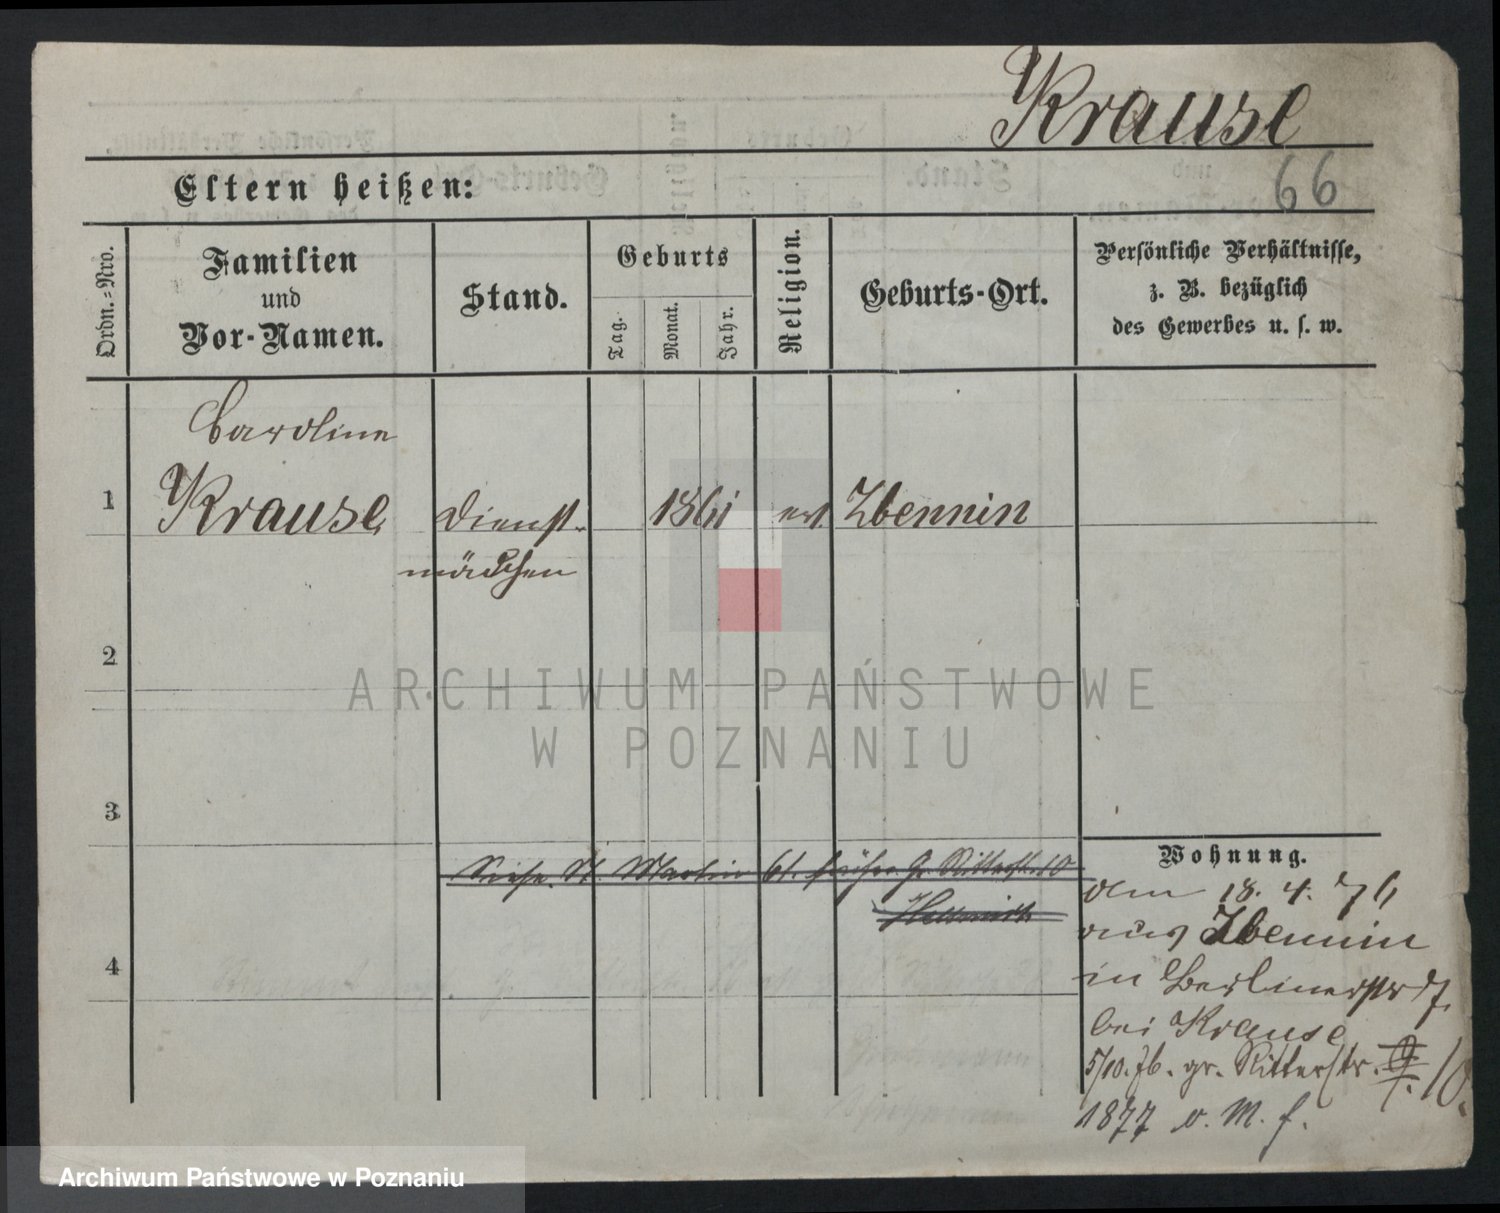 Krause
66
Eltern heißen:
Ordn.-Nro.
Familien
und
Vor-Namen.
Stand.
Geburts
Tag.
Monat.
Jahr.
Religion.
Geburts-Ort.
Persönliche Verhältnisse,
z. B. bezüglich
des Gewerbes u. s. w.
Caroline
1 Krause Dienst- 1861 ev. Zbennin
mädchen
2
ARCHIWUM PAŃSTWOWE
W POZNANIU
3
St. Martin 61. früher Gr. Ritterstr. 10
Wohnung.
4
den 18. 4. 76
aus Zbennin
in Berlinerstr
bei Krause
5/10. 76. gr. Ritterstr. 10.
1877 v. M. f.
Archiwum Państwowe w Poznaniu